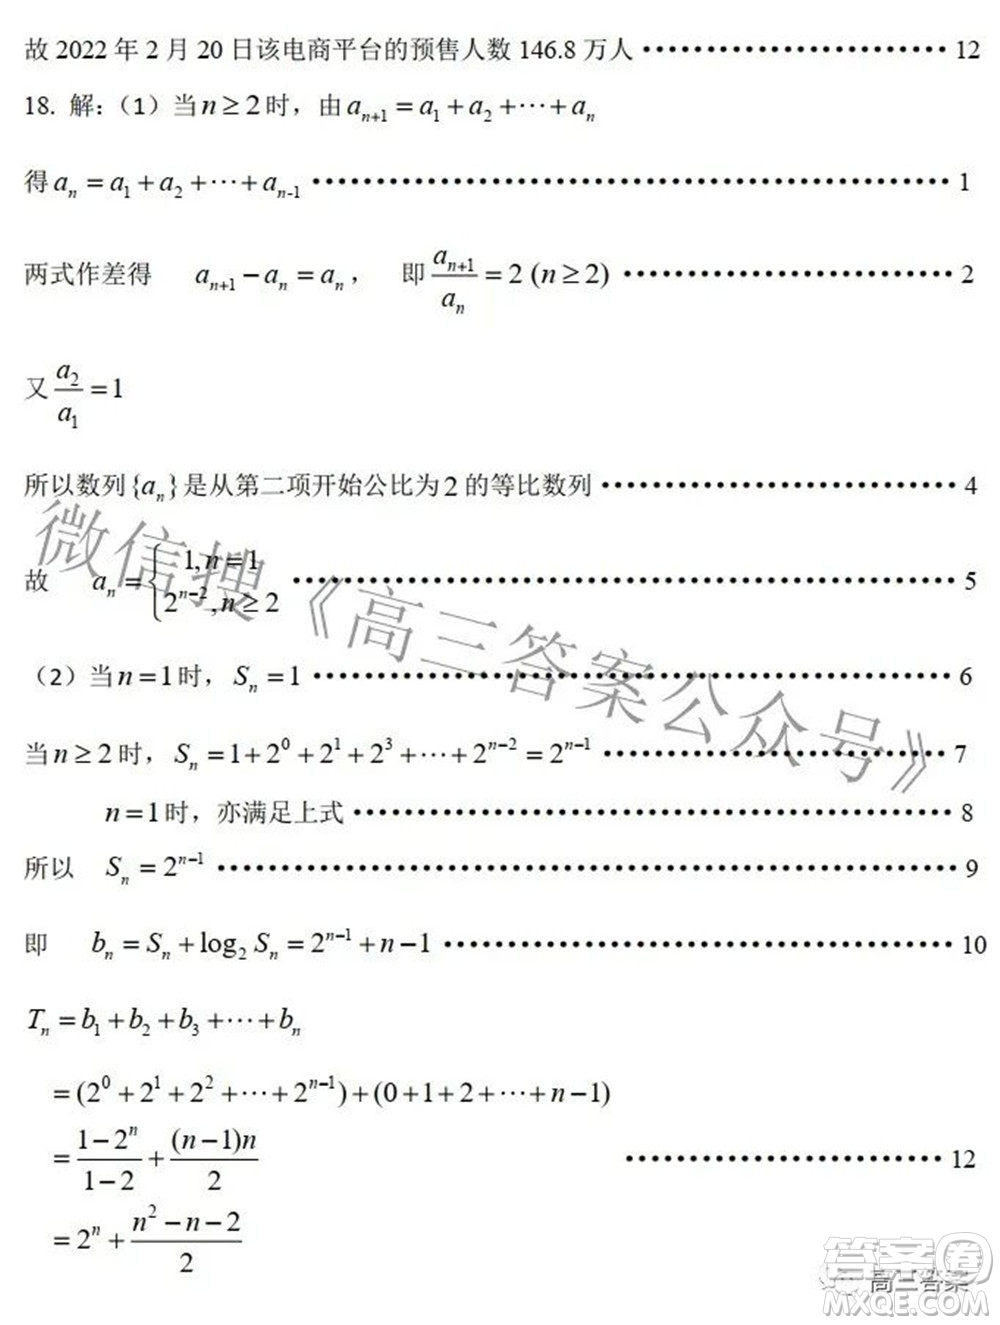 故 2022 年 2 月 20 日该电商平台的预售人数 146.8 万人 ······················· 12
18. 解：（1）当 n ≥ 2 时，由 a_{n+1} = a_1 + a_2 + ⋯ + a_n
得 a_n = a_1 + a_2 + ⋯ + a_{n-1} ······················· 1
两式作差得 a_{n+1} − a_n = a_n ， 即 a_{n+1}/a_n = 2 (n ≥ 2) ······················· 2
又 a_2/a_1 = 1
所以数列 {a_n} 是从第二项开始公比为 2 的等比数列 ······················· 4
故 a_n = { 1, n = 1
2^{n−2}, n ≥ 2 ······················· 5
（2）当 n = 1 时，S_n = 1 ······················· 6
当 n ≥ 2 时，S_n = 1 + 2^0 + 2^1 + 2^3 + ⋯ + 2^{n−2} = 2^{n−1} ······················· 7
n = 1 时，亦满足上式 ······················· 8
所以 S_n = 2^{n−1} ······················· 9
即 b_n = S_n + log_2 S_n = 2^{n−1} + n − 1 ······················· 10
T_n = b_1 + b_2 + b_3 + ⋯ + b_n
= (2^0 + 2^1 + 2^2 + ⋯ + 2^{n−1}) + (0 + 1 + 2 + ⋯ + n − 1)
= (1 − 2^n)/(1 − 2) + (n − 1)n/2 ······················· 12
= 2^n + (n^2 − n − 2)/2
微信搜《高三答案公众号》
答案圈
高三答案
MXQE.COM